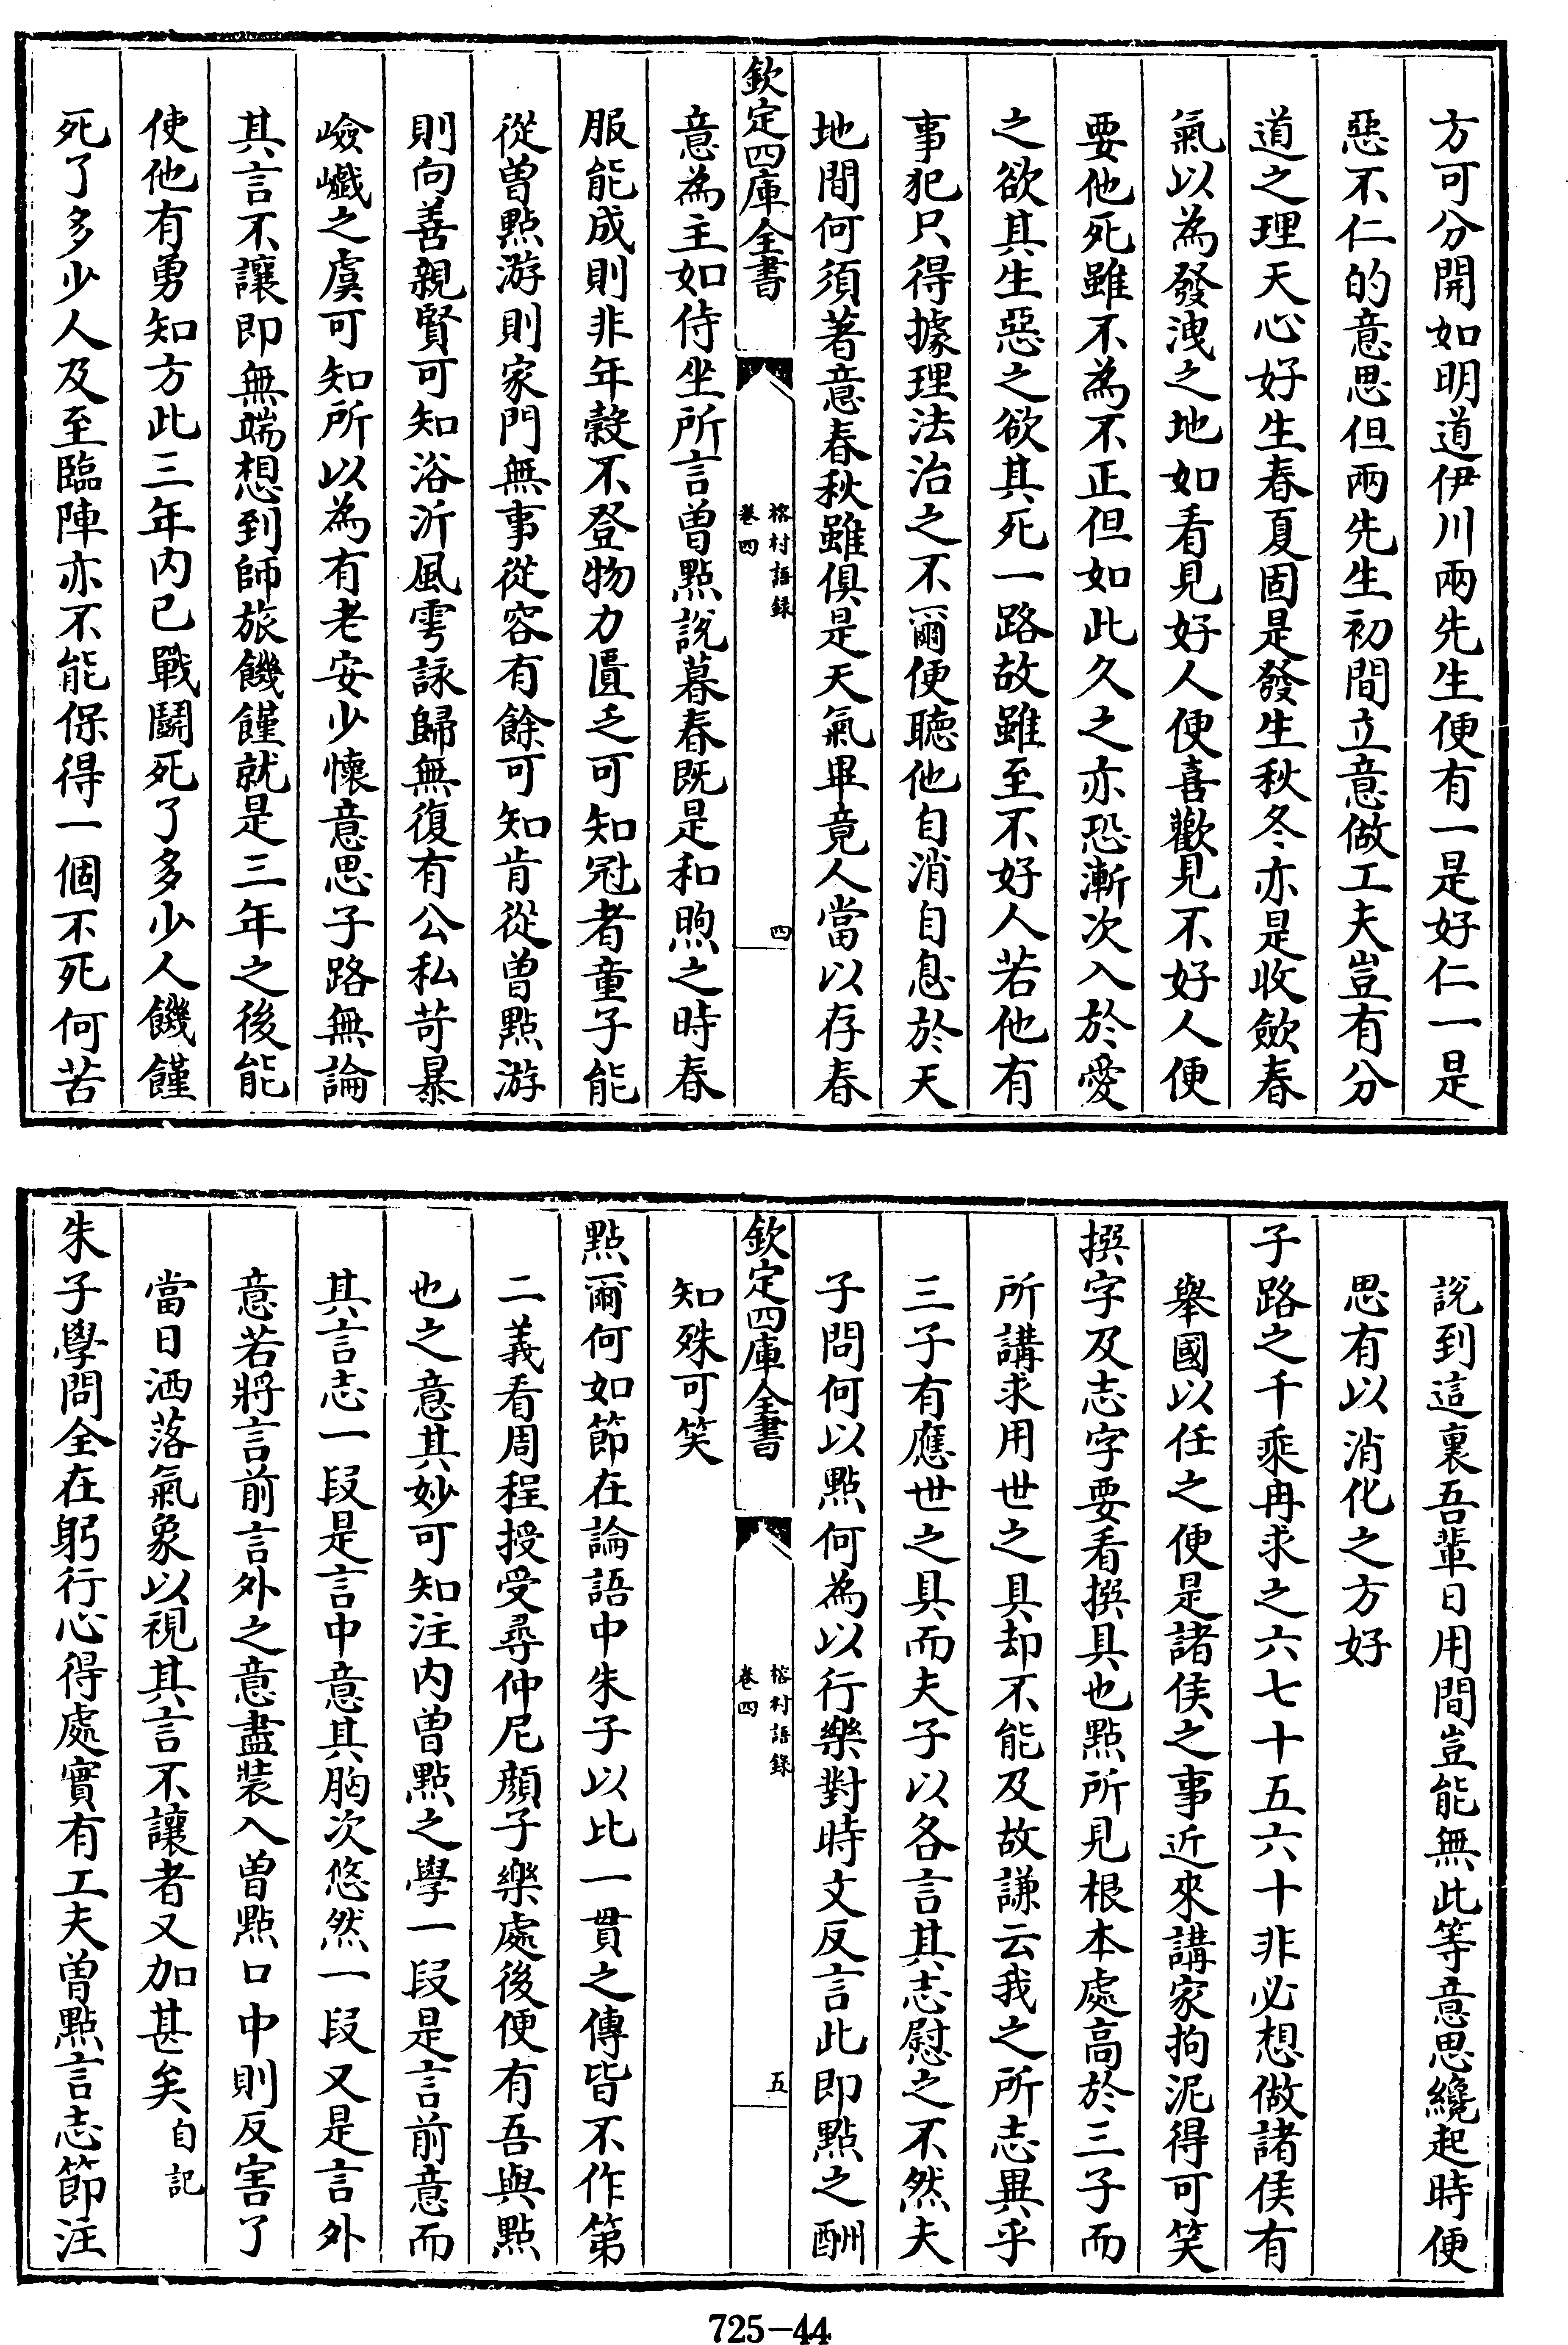 方可分開如明道伊川兩先生便有一是好仁一是
惡不仁的意思但兩先生初間立意做工夫豈有分
道之理天心好生春夏固是發生秋冬亦是收斂春
氣以為發洩之地如看見好人便喜歡見不好人便
要他死雖不為不正但如此久之亦恐漸次入於愛
之欲其生惡之欲其死一路故雖至不好人若他有
事犯只得據理法治之不爾便聽他自消自息於天
地間何須著意春秋雖俱是天氣畢竟人當以存春
欽定四庫全書
榕村語錄
卷四
四
意為主如侍坐所言曾點說暮春既是和煦之時春
服能成則非年穀不登物力匱乏可知冠者童子能
從曾點游則家門無事從容有餘可知肯從曾點游
則向善親賢可知浴沂風雩詠歸無復有公私苛暴
嶮巇之虞可知所以為有老安少懷意思子路無論
其言不讓即無端想到師旅饑饉就是三年之後能
使他有勇知方此三年內已戰鬬死了多少人饑饉
死了多少人及至臨陣亦不能保得一個不死何苦
說到這裏吾輩日用間豈能無此等意思纔起時便
思有以消化之方好
子路之千乘冉求之六七十五六十非必想做諸侯有
舉國以任之便是諸侯之事近來講家拘泥得可笑
撰字及志字要看撰具也點所見根本處高於三子而
所講求用世之具却不能及故謙云我之所志異乎
三子有應世之具而夫子以各言其志慰之不然夫
子問何以點何為以行樂對時文反言此即點之酬
欽定四庫全書
榕村語錄
卷四
五
知殊可笑
點爾何如節在論語中朱子以比一貫之傳皆不作第
二義看周程授受尋仲尼顏子樂處後便有吾與點
也之意其妙可知注內曾點之學一段是言前意而
其言志一段是言中意其胸次悠然一段又是言外
意若將言前言外之意盡裝入曾點口中則反害了
當日洒落氣象以視其言不讓者又加甚矣自記
朱子學問全在躬行心得處實有工夫曾點言志節注
725-44